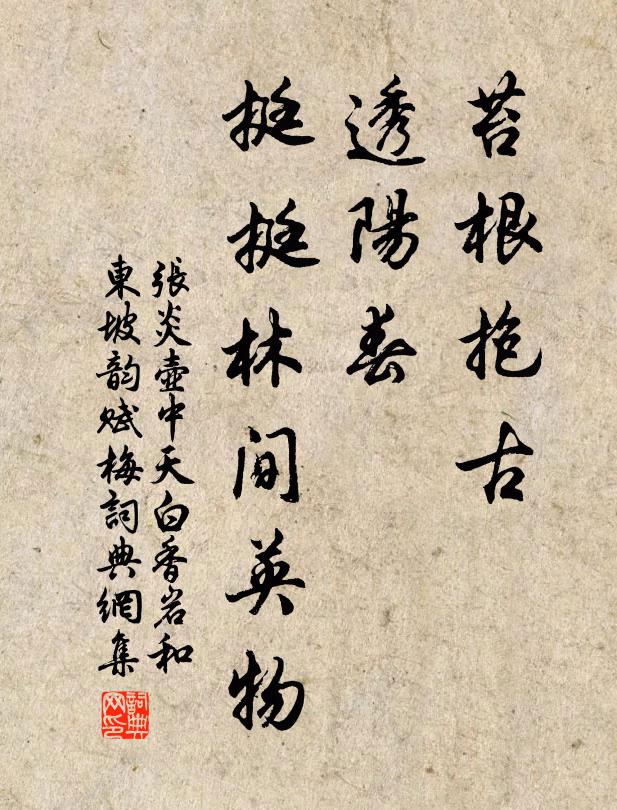 苔根抱古
透陽春
挺挺林間英物
張炎壺中天白香岩和
東坡韵賦梅詞典網集
詞典
网印